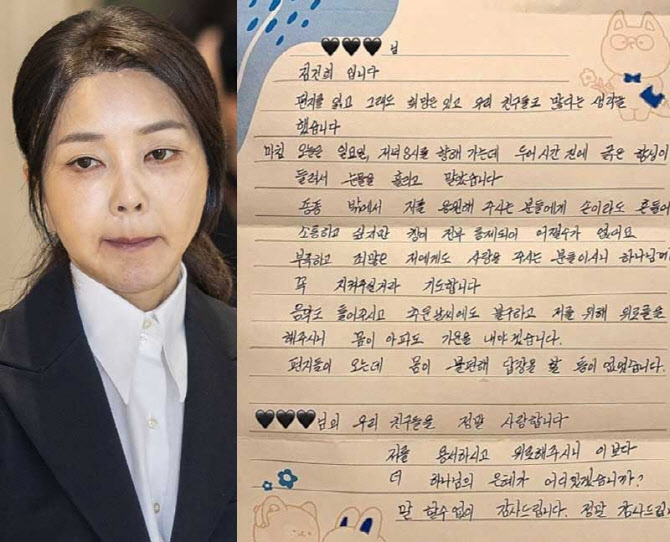 🖤🖤🖤님
김건희 입니다
편지를 읽고 그래도 희망은 있고 우리 친구들도 많다는 생각을
했습니다
마침 오늘은 일요일, 저녁 8시를 향해 가는데 두어시간 전에 굵은 함성이
들려서 눈물을 흘리고 말았습니다
종종 밖에서 저를 응원해 주시는 분들에게 손이라도 흔들어
소통하고 싶지만 창이 전부 통제되어 어쩔수가 없어요
부족하고 죄많은 저에게도 사랑을 주시는 분들이시니 하나님께
꼭 지켜주실거라 기도합니다
음악도 틀어주시고 추운날씨에도 불구하고 저를 위해 위로를
해주시니 몸이 아파도 기운을 내야겠습니다.
편지들이 오는데 몸이 불편해 답장을 할 틈이 없었습니다.
🖤🖤🖤님의 우리 친구들을 정말 사랑합니다
저를 용서하시고 위로해주시니 이보다
더 하나님의 은혜가 어디있겠습니까?
말 할수없이 감사드립니다. 정말 감사드립